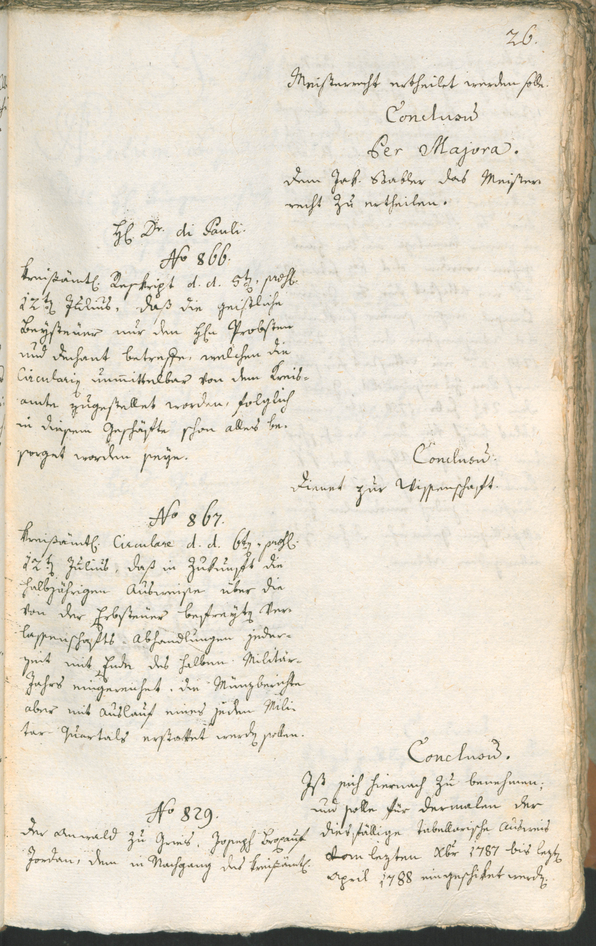 26.
Meisterrecht ertheilet werden solle.
Conclusū
Per Majora.
Dem Jak. Stabler das Meister-
recht zu ertheilen.
H. Dr. di Pauli.
No 866.
Kreisämtl. Reskript d. d. 5t, præs.
12t Julius, daß die geistliche
Beysteuer nur den H̄en Probsten
und Dechant betrefe, welchen die
Circularien unmittelbar von dem Kreis-
amte zugestellet worden, folglich
in diesem Geschäfte schon alles be-
sorget worden seye.
Conclusū:
Dienet zur Wissenschaft.
No 867.
Kreisämtl. Circulare d. d. 6t, præs.
12t Julius, daß in Zukunft die
halbjährigen Ausweise über die
von der Erbsteuer befreyte Ver-
lassenschafts-Abhandlungen jeder-
zeit mit Ende des halben Militär-
Jahrs eingereichet, die Münzberichte
aber mit Auslauf eines jeden Mili-
tar Quartals erstattet werden sollen.
Conclusū.
Ist sich hiernach zu benehmen;
und solle für dermalen der
diesfällige tabellarische Ausweis
vom lezten Xbr 1787 bis lezt
April 1788 eingeschiket werden.
No 829.
Der Anwald zu Gries, Joseph
Jordan, dem in Nachgang des kreisämtl.